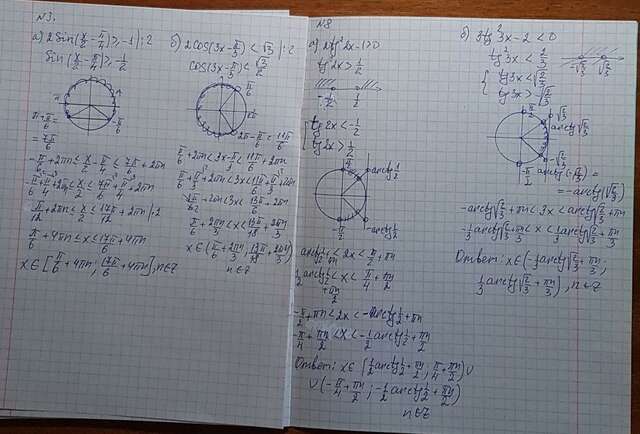 N3.
а) 2sin(x/2 - π/4) ≥ -1 |:2
sin(x/2 - π/4) ≥ -1/2
π
-π/6
π + π/6 =
= 7π/6
-π/6 + 2πn ≤ x/2 - π/4 ≤ 7π/6 + 2πn
π/12 + 2πn ≤ x/2 ≤ 17π/12 + 2πn |·2
π/6 + 4πn ≤ x ≤ 17π/6 + 4πn
x ∈ [π/6 + 4πn; 17π/6 + 4πn], n∈Z
б) 2cos(3x - π/3) < √3 |:2
cos(3x - π/3) < √3/2
π/6
2π - π/6 = 11π/6
π/6 + 2πn < 3x - π/3 < 11π/6 + 2πn
π/6 + π/3 + 2πn < 3x < 11π/6 + π/3 + 2πn
n∈Z
N8
а) 2tg²2x - 1 > 0
tg²2x > 1/2
tg2x < -1/2
tg2x > 1/2
arctg 1/2
-arctg 1/2
-π/2
arctg 1/2 + πn < 2x < π/2 + πn
-π/2 + πn < 2x < -arctg 1/2 + πn
-π/4 + πn/2 < x < -1/2 arctg 1/2 + πn/2
Ответ: x ∈ (1/2 arctg 1/2 + πn/2; π/4 + πn/2) ∪
∪ (-π/4 + πn/2; -1/2 arctg 1/2 + πn/2)
n∈Z
б) 3tg²3x - 2 < 0
tg²3x < 2/3
-√2/3 √2/3
tg3x < √2/3
tg3x > -√2/3
√2/3
arctg √2/3
-√2/3
-π/2
arctg(-√2/3) =
= -arctg(√2/3)
-arctg √2/3 + πn < 3x < arctg √2/3 + πn
-1/3 arctg √2/3 + πn/3 < x < 1/3 arctg √2/3 + πn/3
Ответ: x ∈ (-1/3 arctg √2/3 + πn/3;
1/3 arctg √2/3 + πn/3), n∈Z